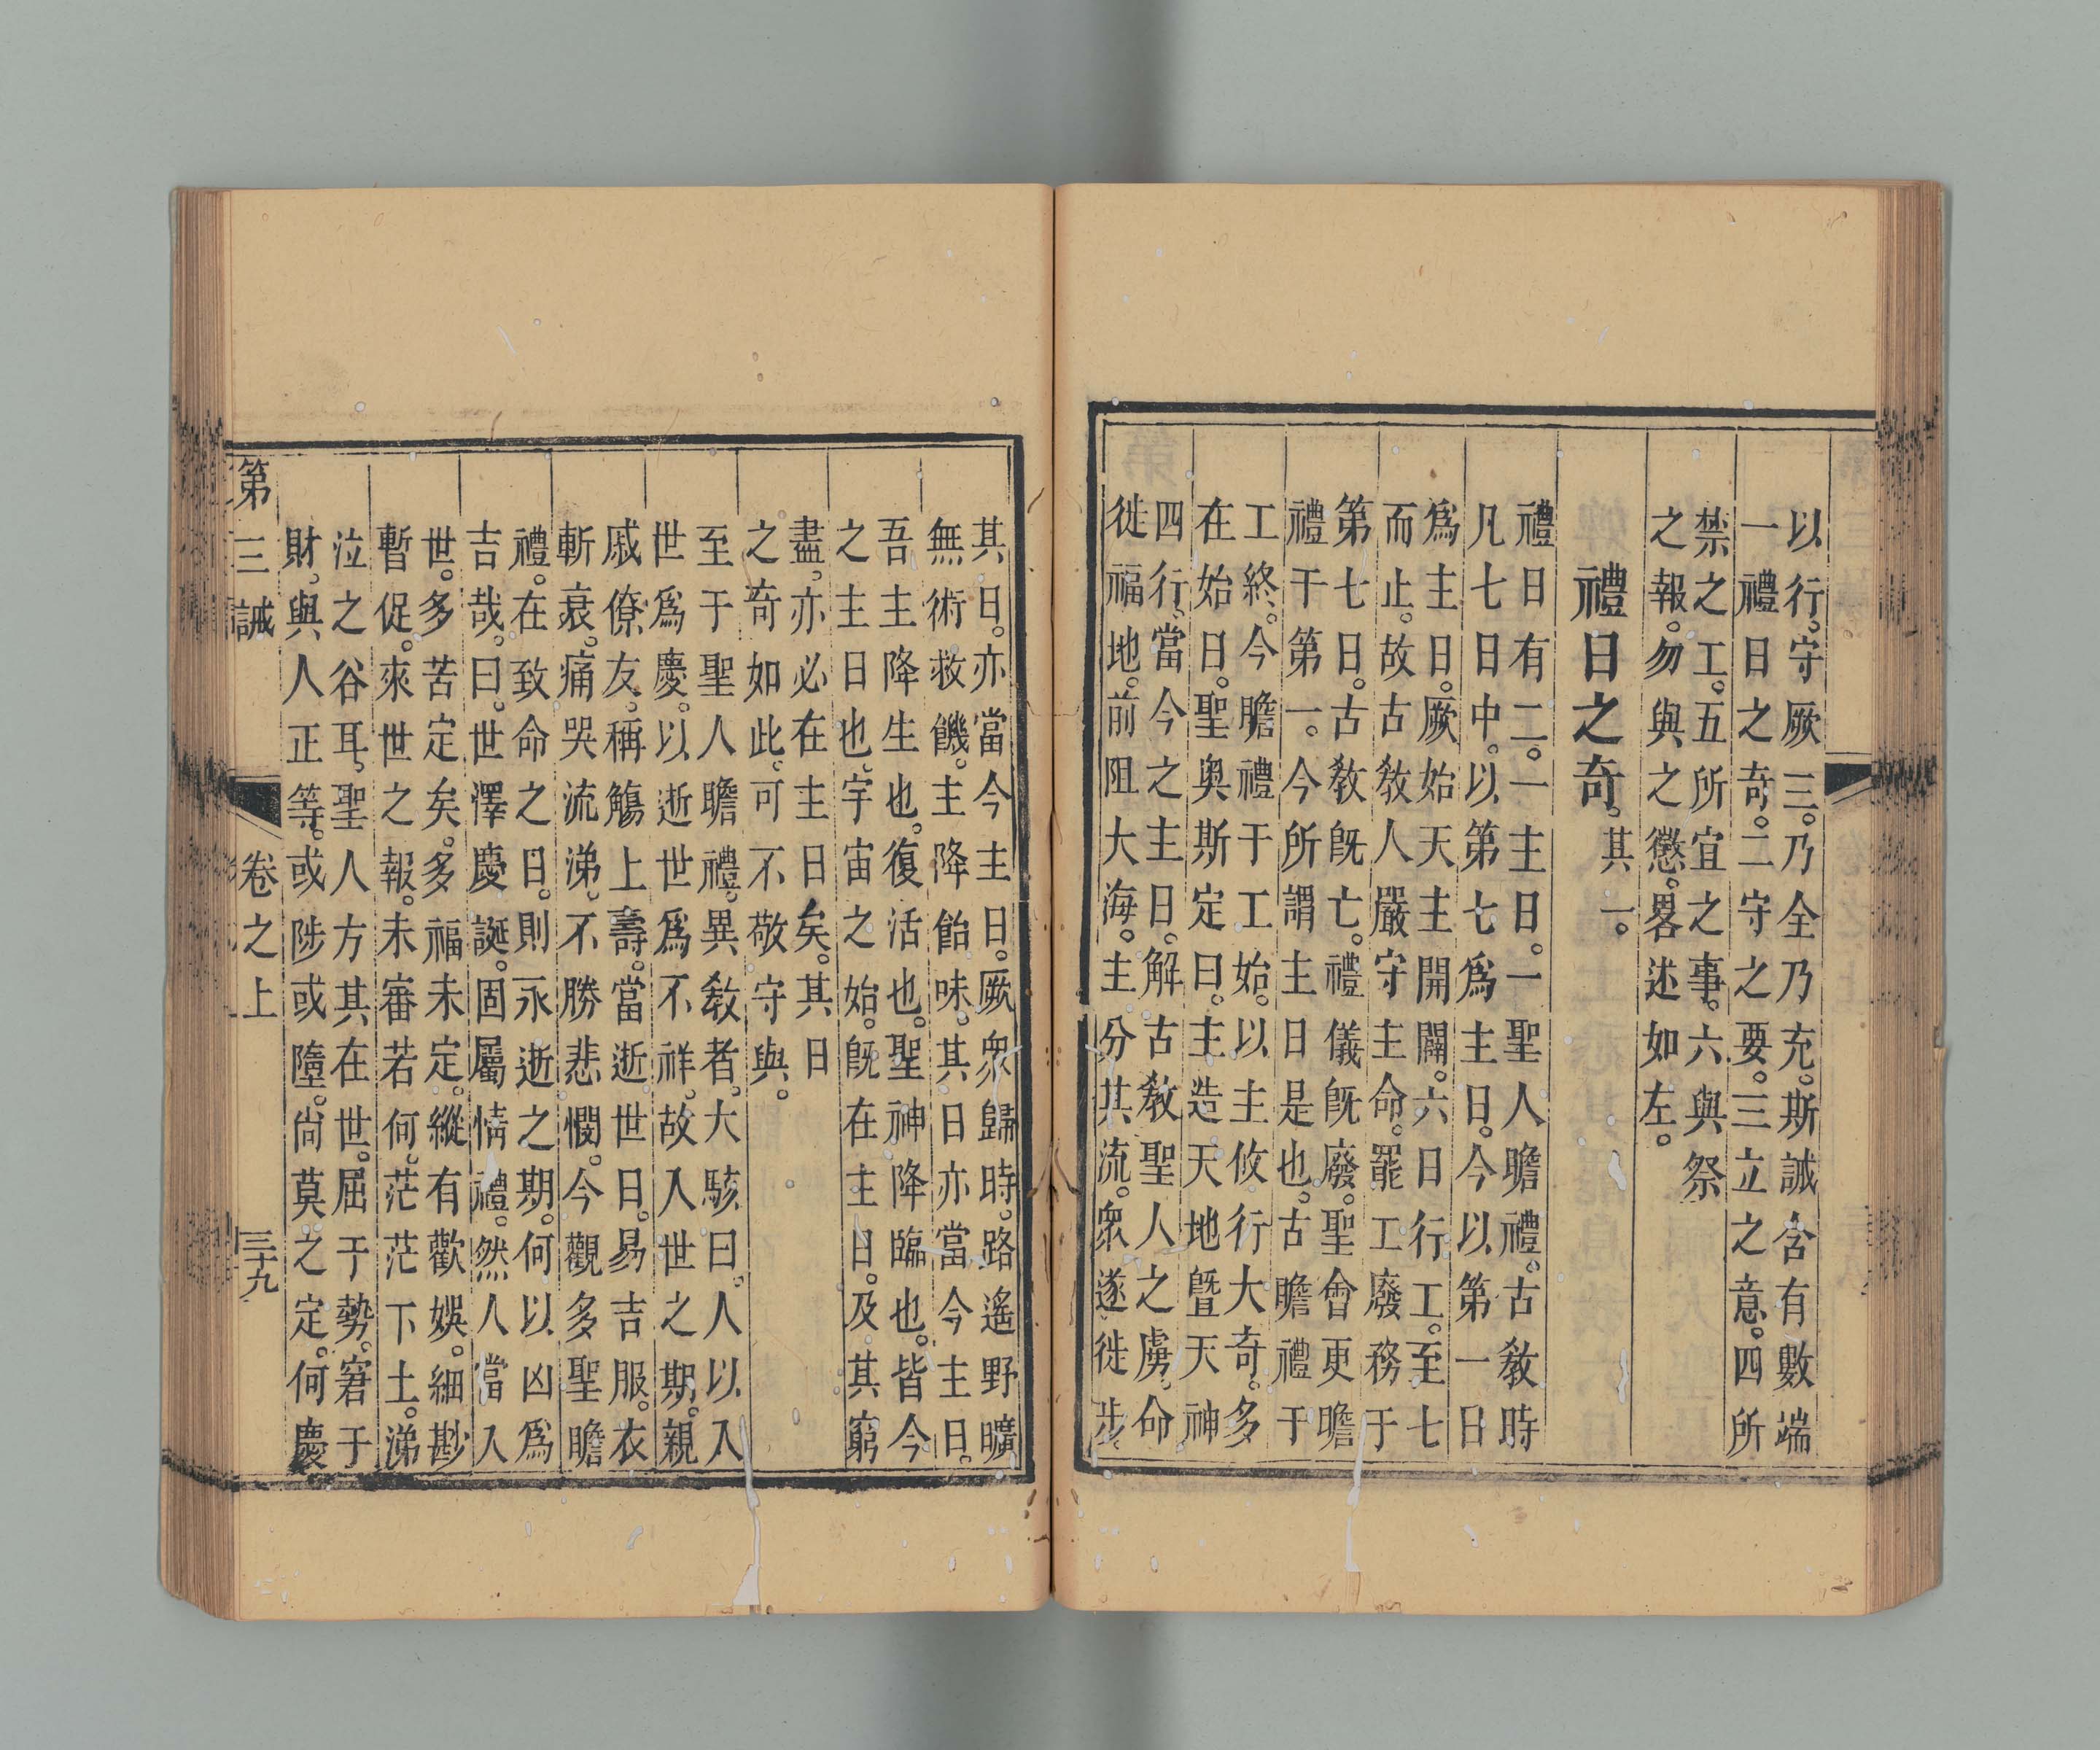 以行。守厥三。乃全乃充。斯誡含有數端
一禮日之奇。二守之要。三立之意。四所
禁之工。五所宜之事。六與祭
之報。勿與之懲。畧述如左。
禮日之奇。其一。
禮日有二。一主日。一聖人瞻禮。古敎時
凡七日中。以第七爲主日。今以第一日
爲主日。厥始天主開闢。六日行工。至七
而止。故古敎人嚴守主命。罷工廢務于
第七日。古敎旣亡。禮儀旣廢。聖會更瞻
禮于第一。今所謂主日是也。古瞻禮于
工終。今瞻禮于工始。以主攸行大奇。多
在始日。聖奥斯定曰。主造天地曁天神
四行。當今之主日。解古敎聖人之虜。命
徙福地。前阻大海。主分其流。衆遂徙步。
其日。亦當今主日。厥衆歸時。路遙野曠
無術救饑。主降飴味。其日亦當今主日。
吾主降生也。復活也。聖神降臨也。皆今
之主日也。宇宙之始。旣在主日。及其窮
盡。亦必在主日矣。其日
之奇如此。可不敬守與。
至于聖人瞻禮。異敎者。大駭曰。人以入
世爲慶。以逝世爲不祥。故入世之期。親
戚僚友。稱觴上壽。當逝世日。易吉服。衣
斬衰。痛哭流涕。不勝悲憫。今觀多聖瞻
禮。在致命之日。則永逝之期。何以凶爲
吉哉。曰。世澤慶誕。固屬情禮。然人當入
世。多苦定矣。多福未定。縱有歡娛。細斟
暫促。來世之報。未審若何。茫茫下土。涕
泣之谷耳。聖人方其在世。屈于勢。窘于
財。與人正等。或陟或隳。尙莫之定。何慶
第三誡 卷之上 三十九